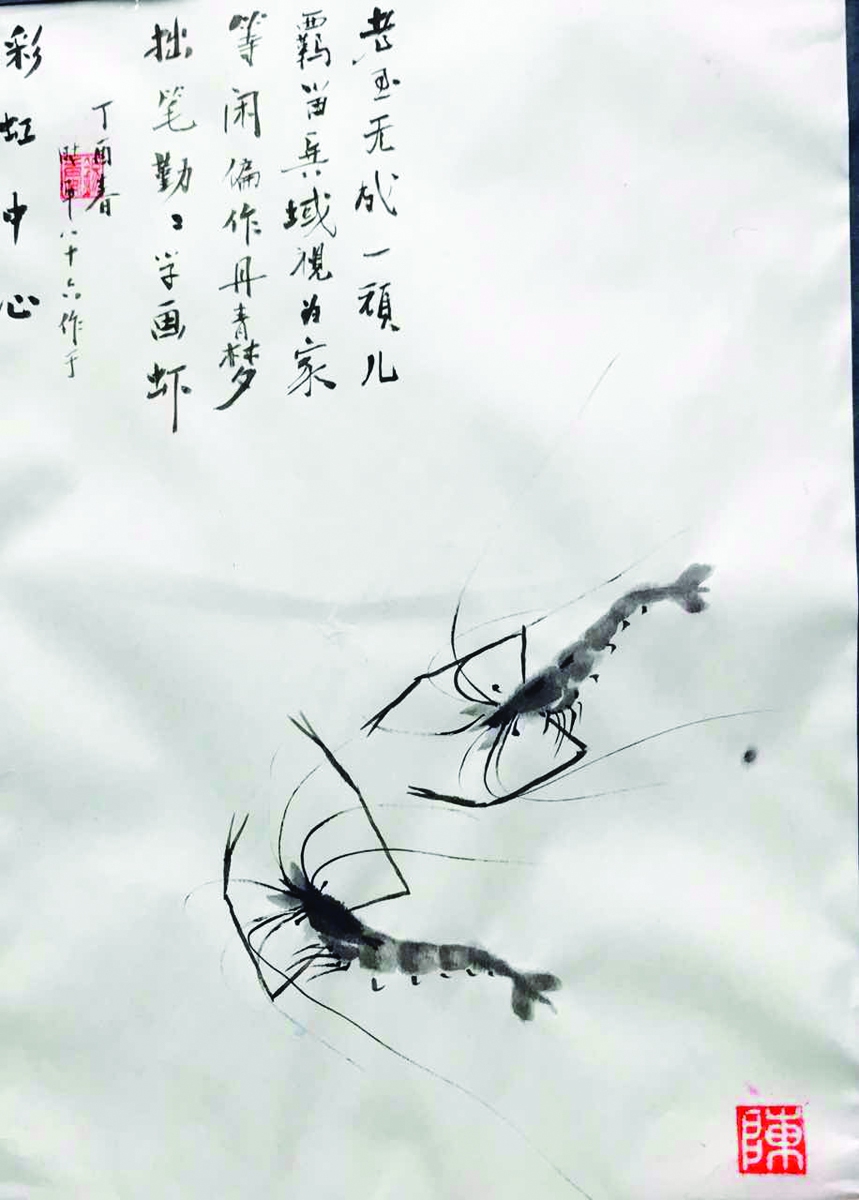 老至无成一頑儿
羁留异域視为家
等闲偏作丹青梦
拙笔勤〻学画虾
丁酉春
时年八十六作于
彩虹中心
陳